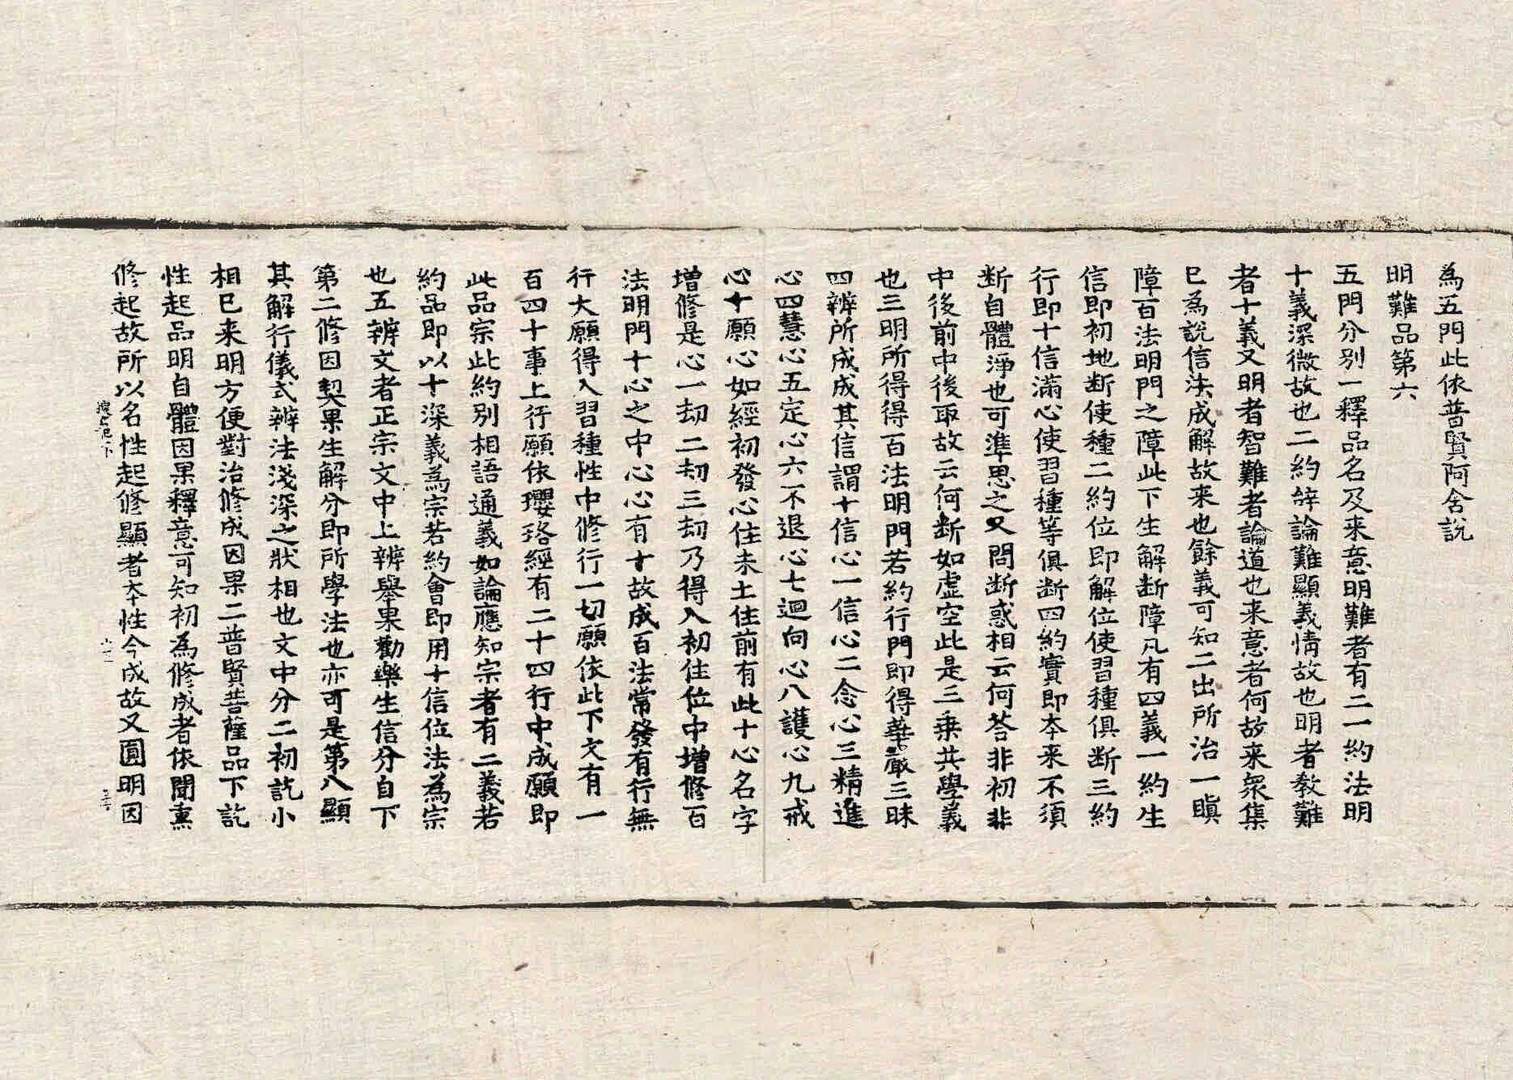 為五門此依普賢阿含說
明難品第六
五門分別一釋品名及来意明難者有二一約法明
十義深微故也二約辞論難顯義情故也明者教難
者十義又明者智難者論道也来意者何故来衆集
巳為說信法成解故来也餘義可知二出所治一瞋
障百法明門之障此下生解断障凡有四義一約生
信即初地断使種二約位即解位使習種俱断三約
行即十信滿心使習種等俱断四約實即本来不須
断自體淨也可準思之又問断惑相云何荅非初非
中後前中後取故云何断如虚空此是三乗共學義
也三明所得得百法明門若約行門即得華嚴三昧
四辨所成成其信謂十信心一信心二念心三精進
心四慧心五定心六不退心七迴向心八護心九戒
心十願心如經初發心住未上住前有此十心名字
增修是心一刧二刧三刧乃得入初住位中增修百
法明門十心之中心心有十故成百法常發有行無
行大願得入習種性中修行一切願依此下文有一
百四十事上行願依瓔珞經有二十四行中成願即
此品宗此約別相語通義如論應知宗者有二義若
約品即以十深義為宗若約會即用十信位法為宗
也五辨文者正宗文中上辨舉果勸樂生信分自下
第二修因契果生解分即所學法也亦可是第八顯
其解行儀式辨法淺深之狀相也文中分二初訖小
相巳来明方便對治修成因果二普賢菩薩品下訖
性起品明自體因果釋意可知初為修成者依聞熏
修起故所以名性起修顯者本性今成故又圓明因
搜玄記下